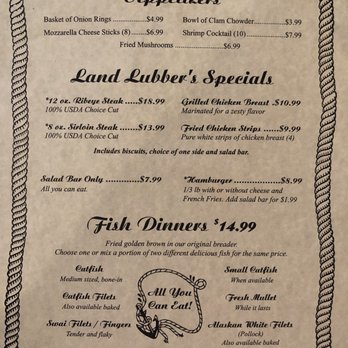 Appetizers
Basket of Onion Rings ............. $4.99
Bowl of Clam Chowder ................ $3.99
Mozzarella Cheese Sticks (8) ...... $6.99
Shrimp Cocktail (10) .................. $7.99
Fried Mushrooms .................... $6.99
Land Lubber's Specials
*12 oz. Ribeye Steak ...... $18.99
100% USDA Choice Cut
Grilled Chicken Breast . $10.99
Marinated for a zesty flavor
*8 oz. Sirloin Steak ........ $13.99
100% USDA Choice Cut
Fried Chicken Strips ..... $9.99
Pure white strips of chicken breast (4)
Includes biscuits, choice of one side and salad bar.
Salad Bar Only ............ $7.99
All you can eat.
*Hamburger ................. $8.99
1/3 lb with or without cheese and
French Fries. Add salad bar for $1.99
Fish Dinners $14.99
Fried golden brown in our original breader.
Choose one or mix a portion of two different delicious fish for the same price.
Catfish
Medium sized, bone-in
Small Catfish
When available
All You
Can Eat!
Catfish Filets
Also available baked
Fresh Mullet
While it lasts
Swai Filets / Fingers
Tender and flaky
Alaskan White Filets
(Pollock)
Also available baked